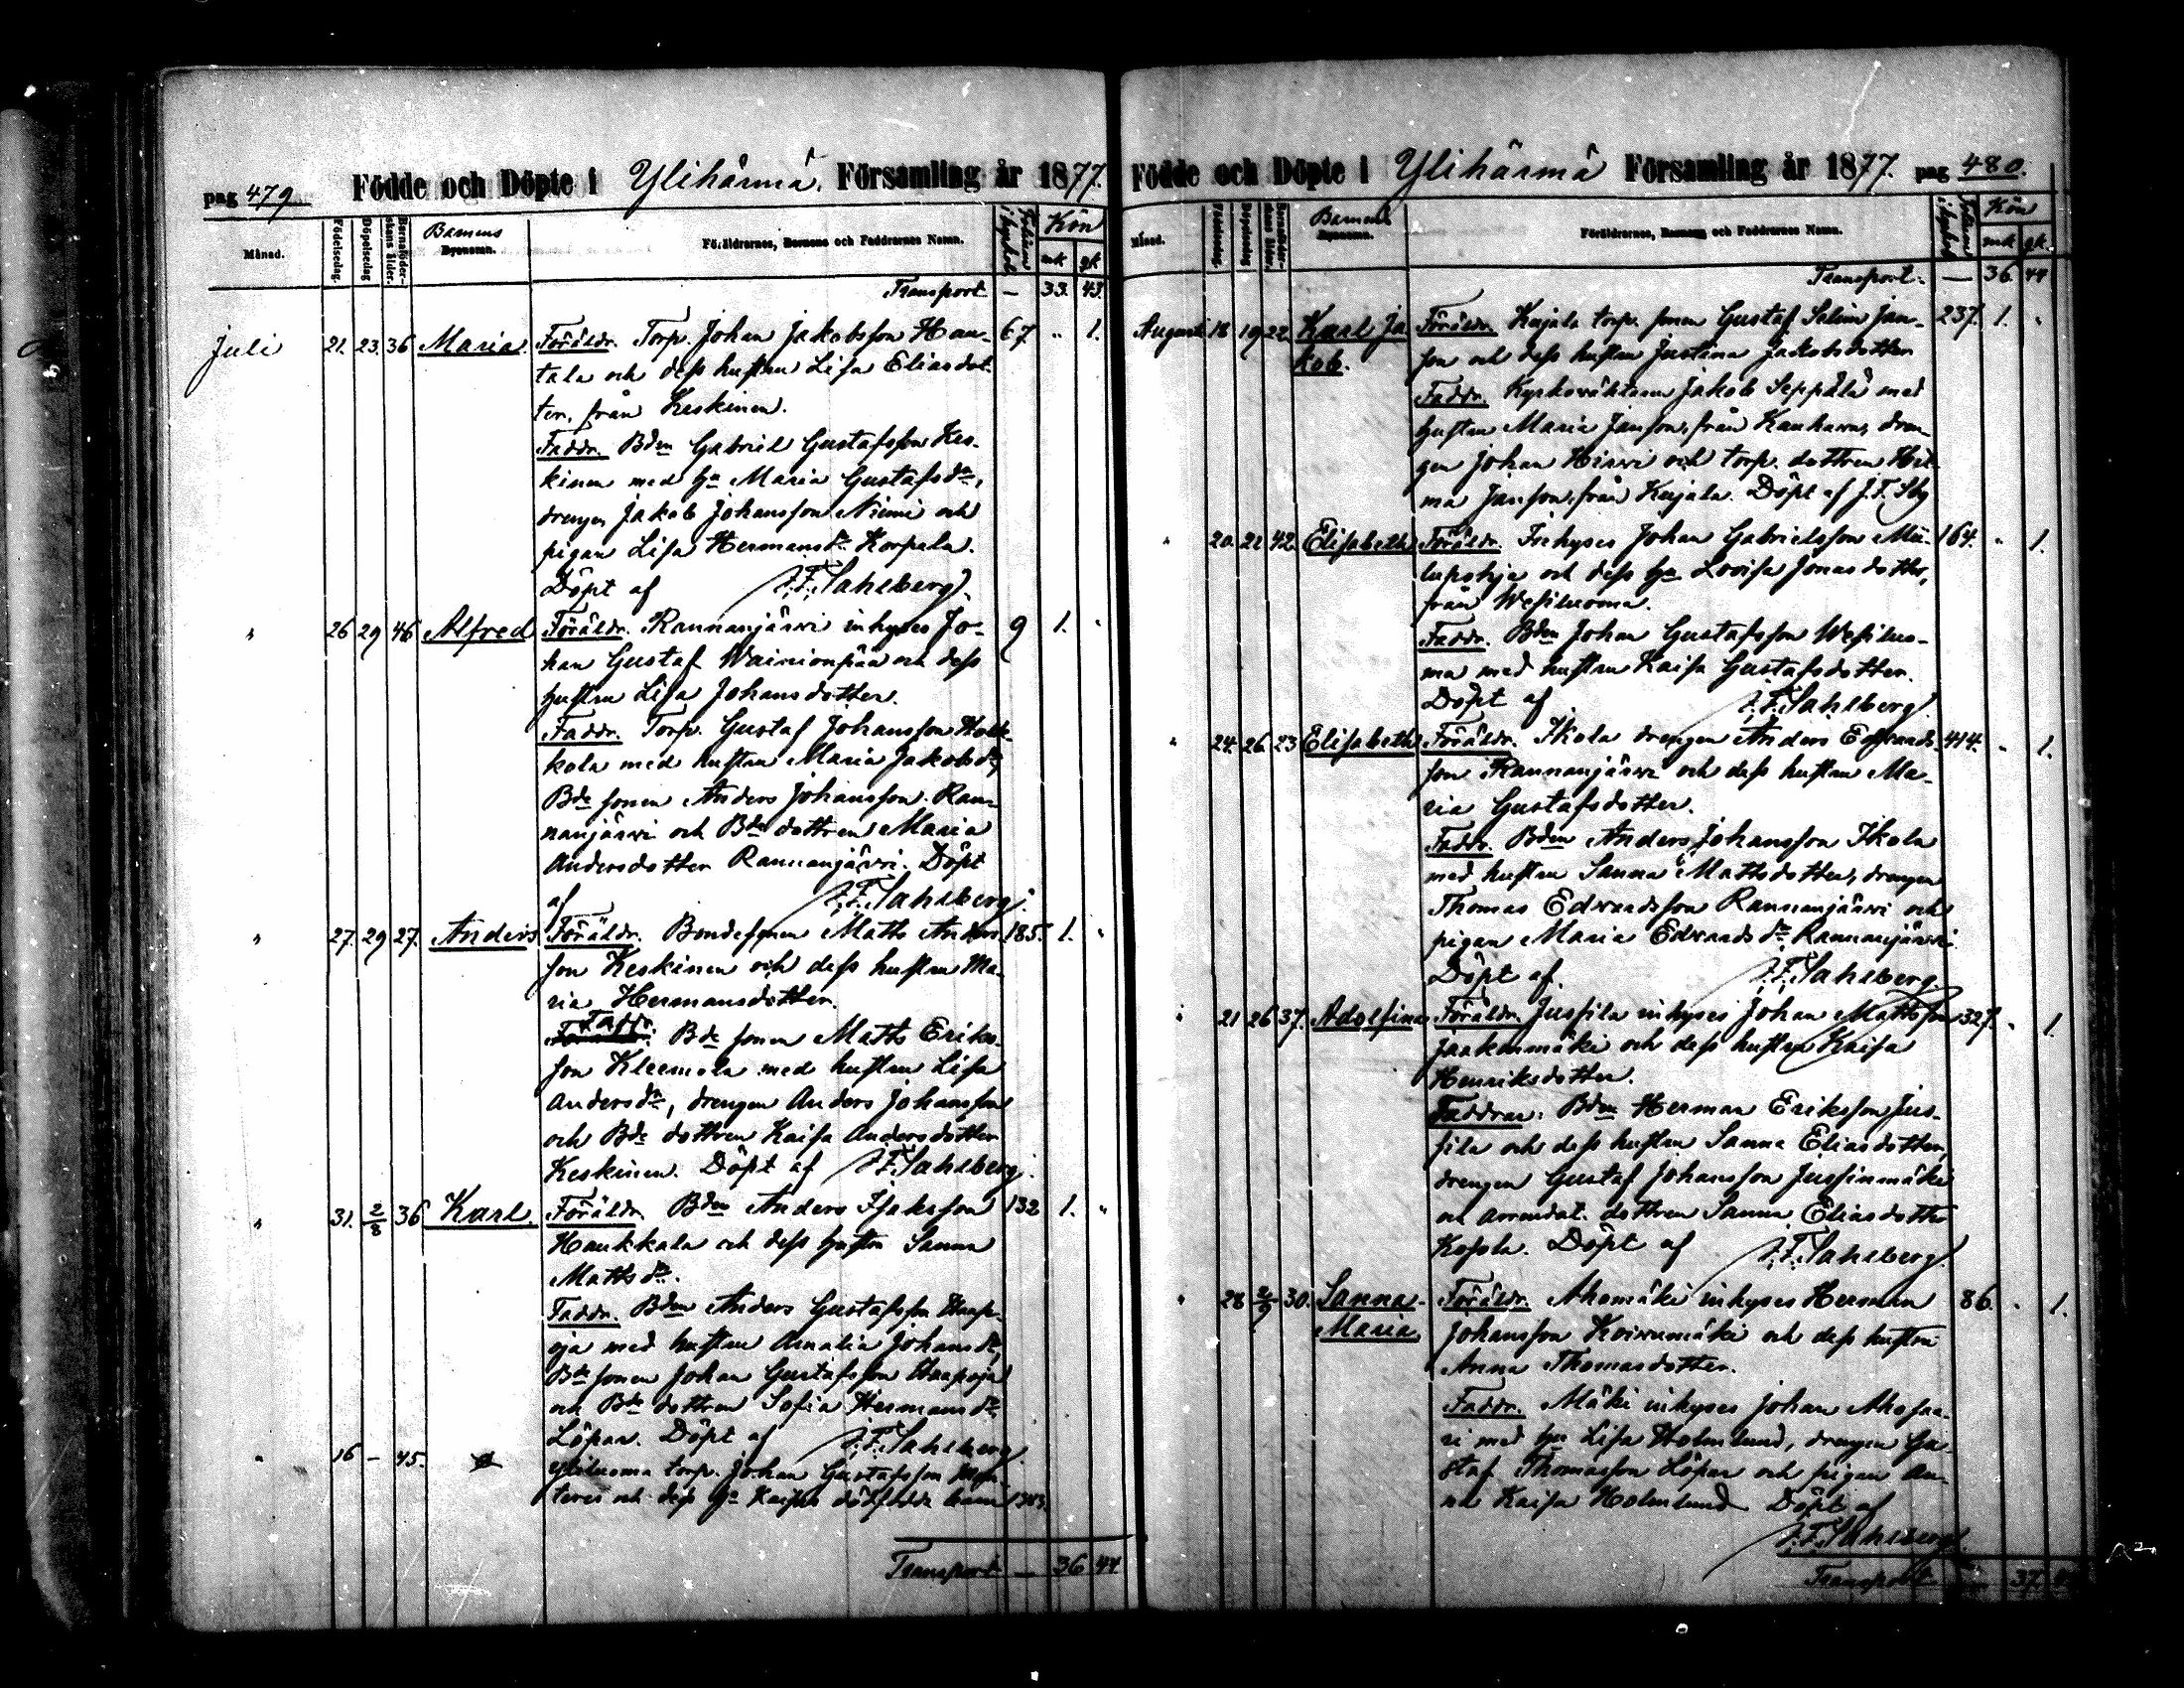 pag 479 Födde och Döpte i Ylihärmä Församling år 1877.
Månad. Födelsedag. Döpelsedag Barnaföderskans ålder. Barnens Byanamn. Föräldrarnes, Barnens och Faddrarnes Namn. Kön
mk qk
Transport — 33. 43.
Juli 21. 23. 36 Maria. Föräldr. Torp. Johan Jakobsson Hau- 67 " 1.
tala och dess hustru Lisa Eliasdot-
ter, från Keskinen.
Faddr. Bden Gabriel Gustafsson Kes-
kinen med h:u Maria Gustafsd:r,
drengen Jakob Johansson Niemi och
pigan Lisa Hermansd:r Korpela.
Döpt af J. F. Sahlberg.
" 26 29 46 Alfred Föräldr. Rannanjärvi inhyses Jo- 9 1. "
han Gustaf Wainionpää och dess
hustru Lisa Johansdotter.
Faddr. Torp. Gustaf Johansson
kola med hustru Maria Jakobsd:r,
Bde sonen Anders Johansson Ran-
nanjärvi och Bde dottren Maria
Andersdotter Rannanjärvi. Döpt
af J. F. Sahlberg.
" 27. 29 27. Anders Föräldr. Bondesonen Matts Anders- 185. 1. "
son Keskinen och dess hustru Ma-
ria Hermansdotter.
Faddr.
Föräldr. Bde sonen Matts Eriks-
son Kleemola med hustru Lisa
Andersd:r, drengen Anders Johansson
och Bde dottren Kaisa Andersdotter
Keskinen. Döpt af J. F. Sahlberg.
" 31. 2/8 36 Karl. Föräldr. Bden Anders Isaksson 132 1. "
Haukkala och dess hustru Sanna
Mattsd:r.
Faddr. Bden Anders Gustafsson Haap-
oja med hustru Amalia Johansd:r,
Bde sonen Johan Gustafsson Haapoja
och Bde dottren Sofia Hermansd:r
Löpar. Döpt af J. F. Sahlberg
" 16 — 45. torp. Johan Gustafsson
och dess h:u Kaisas dödfödda barn
Transport — 36 44
Födde och Döpte i Ylihärmä Församling år 1877. pag 480.
Månad. Födelsedag. Döpelsedag Barnaföderskans ålder. Barnens Byanamn. Föräldrarnes, Barnens och Faddrarnes Namn. Kön
mk qk
Transport. — 36 44
Augusti 18 19 22 Karl Ja- Föräldr. Kujala torp. sonen Gustaf Selim Jan- 237. 1. "
kob. son och dess hustru Justina Jakobsdotter
Faddr. Kyrkoväktaren Jakob Seppälä med
hustru Maria Janson, från Kauhava, dren-
gen Johan Hirvi och torp. dottren Hil-
ma Janson, från Kujala. Döpt af J. F. Sbg
" 20. 21 42. Elisabeth Föräldr. Inhyses Johan Gabrielsson 164. " 1.
och dess h:u Lovisa Jonasdotter,
från Wesiluoma.
Faddr. Bden Johan Gustafsson Wesiluo-
ma med hustru Kaisa Gustafsdotter.
Döpt af J. F. Sahlberg
" 24. 26 23 Elisabeth Föräldr. Ikola drengen Anders Edvards- 414. " 1.
son Rannanjärvi och dess hustru Ma-
ria Gustafsdotter.
Faddr. Bden Anders Johansson Ikola
med hustru Sanna Mattsdotter, drengen
Thomas Edvardsson Rannanjärvi och
pigan Maria Edvardsd:r Rannanjärvi
Döpt af. J. F. Sahlberg.
" 21 26 37. Adolfina Föräldr. Jussila inhyses Johan Mattsson 327. " 1.
Jaakonmäki och dess hustru Kaisa
Henriksdotter.
Faddrar. Bden Herman Eriksson Jus-
sila och dess hustru Sanna Eliasdotter,
drengen Gustaf Johansson Jussinmäki
och arrendat. dottren Sanna Eliasdotter
Kosola. Döpt af J. F. Sahlberg
" 28 2/9 30. Sanna- Föräldr. Ahomäki inhyses Herman 86. " 1.
Maria Johansson Koivumäki och dess hustru
Anna Thomasdotter.
Faddr. Mäki inhyses Johan Ahosaa-
ri med h:u Lisa Holmlund, drengen Gu-
staf Thomasson Löpar och pigan An-
na Kaisa Holmlund Döpt af
J. F. Sahlberg.
Transport — 37.